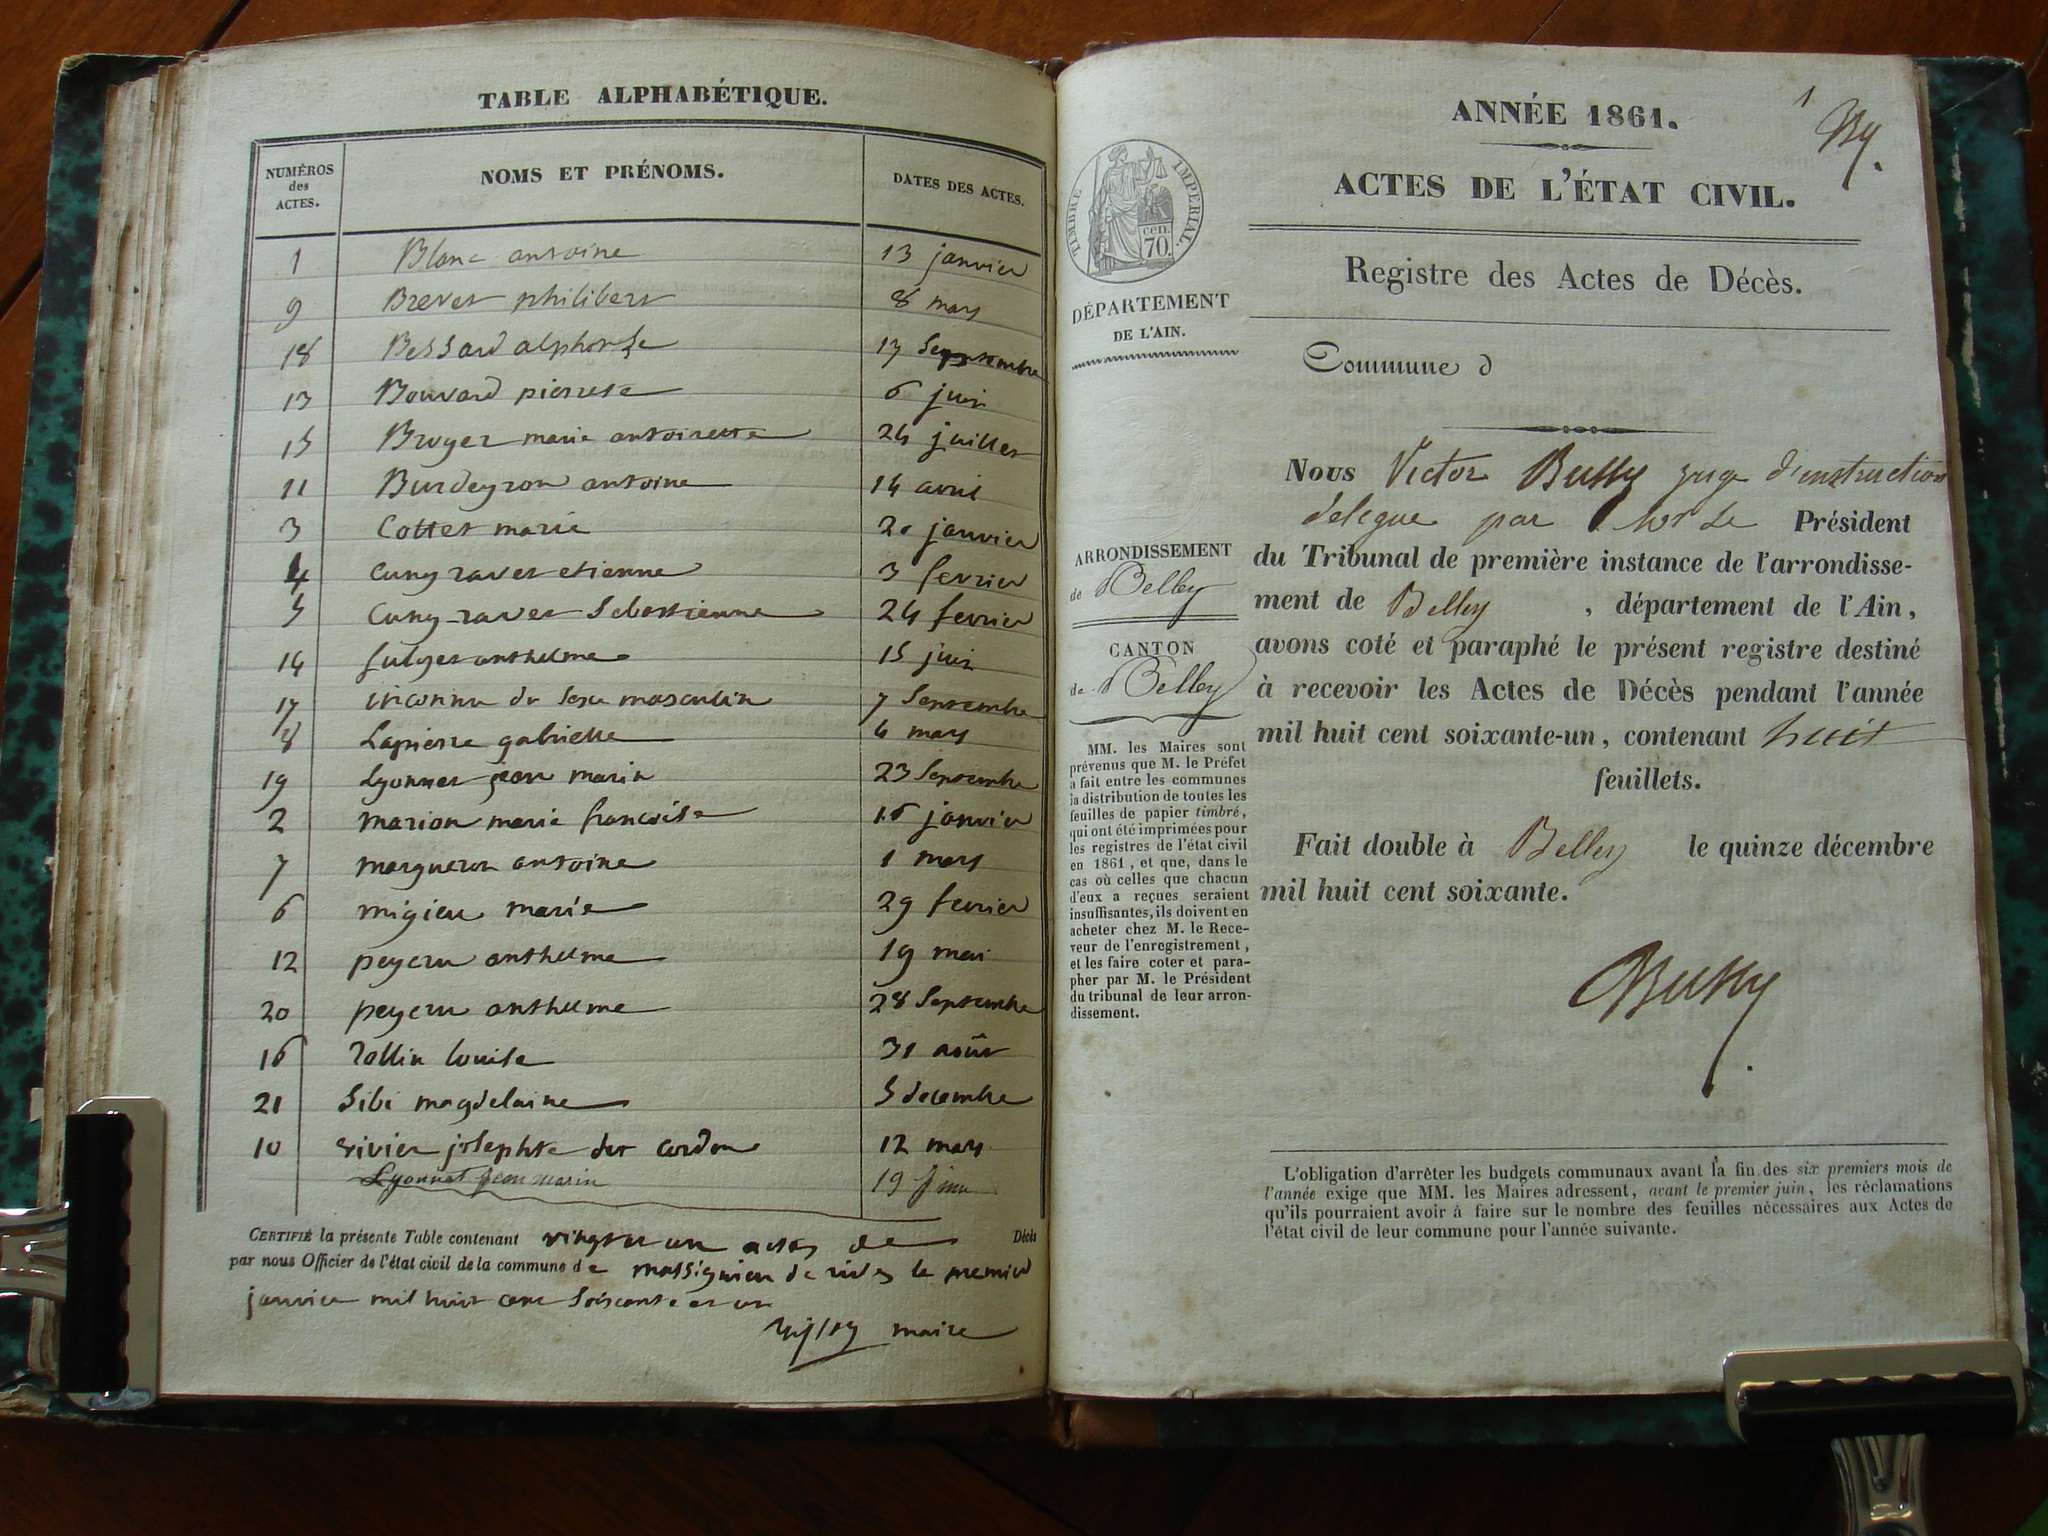 TABLE ALPHABÉTIQUE.
NUMÉROS des ACTES. NOMS ET PRÉNOMS. DATES DES ACTES.
1 Blanc antoine 13 janvier
9 Brevet philibert 8 mars
18 Bessard alphonse 17 Septembre
13 Bouvard pierrete 6 juin
15 Broyer marie antoinette 24 juillet
11 Burdeyron antoine 14 avril
3 Cottet marie 20 janvier
4 Cuny ravet etienne 3 fevrier
5 Cuny-ravet Sebastienne 24 fevrier
14 anthelme 15 juin
17 inconnu du sexe masculin 7 Septembre
8 Lapierre gabrielle 4 mars
19 Lyonnet jean marin 23 Septembre
2 marion marie francoise 16 janvier
7 margueron antoine 1 mars
6 migieu marie 29 fevrier
12 peycru anthelme 19 mai
20 peycru anthelme 28 Septembre
16 rollin louise 31 août
21 Sibi magdelaine 5 decembre
10 vivier josephte dit cordon 12 mars
Lyonnet jean marin 19 juin
CERTIFIÉ la présente Table contenant vingt et un actes de Décès
par nous Officier de l'état civil de la commune de massignieu de rives le premier
janvier mil huit cent soixante et un
maire
1
ANNÉE 1861.
ACTES DE L'ÉTAT CIVIL.
Registre des Actes de Décès.
TIMBRE IMPÉRIAL.
CEN. 70.
DÉPARTEMENT
DE L'AIN.
Commune d
ARRONDISSEMENT
de Belley
CANTON
de Belley
MM. les Maires sont
prévenus que M. le Préfet
a fait entre les communes
la distribution de toutes les
feuilles de papier timbré,
qui ont été imprimées pour
les registres de l'état civil
en 1861, et que, dans le
cas où celles que chacun
d'eux a reçues seraient
insuffisantes, ils doivent en
acheter chez M. le Rece-
veur de l'enregistrement,
et les faire coter et para-
pher par M. le Président
du tribunal de leur arron-
dissement.
Nous Victor Bussy juge d'instruction
delegue par Mr Le Président
du Tribunal de première instance de l'arrondisse-
ment de Belley , département de l'Ain,
avons coté et paraphé le présent registre destiné
à recevoir les Actes de Décès pendant l'année
mil huit cent soixante-un, contenant huit
feuillets.
Fait double à Belley le quinze décembre
mil huit cent soixante.
Bussy
L'obligation d'arrêter les budgets communaux avant la fin des six premiers mois de
l'année exige que MM. les Maires adressent, avant le premier juin, les réclamations
qu'ils pourraient avoir à faire sur le nombre des feuilles nécessaires aux Actes de
l'état civil de leur commune pour l'année suivante.